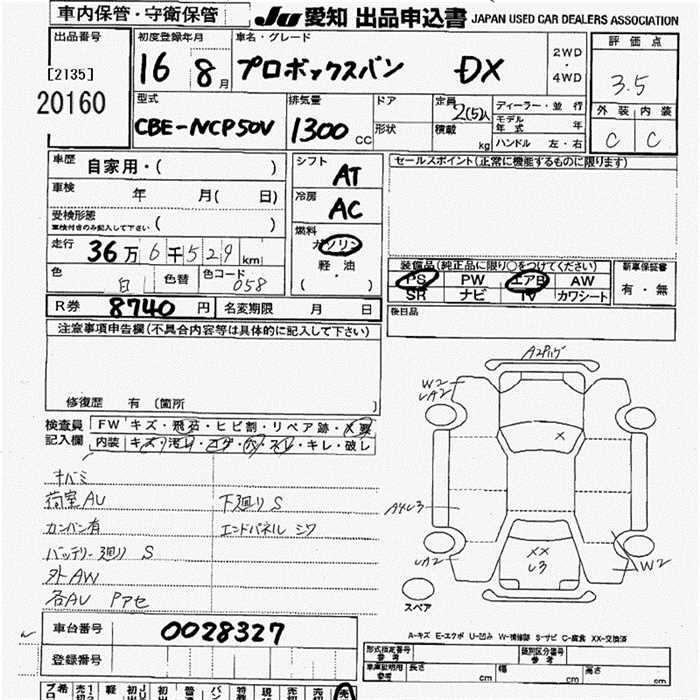 車内保管・守衛保管
JU 愛知 出品申込書 JAPAN USED CAR DEALERS ASSOCIATION
出品番号 [2135] 20160
初度登録年月 16 8月
車名・グレード プロボックスバン DX
2WD・4WD
評価点 3.5
外装 内装 C C
型式 CBE-NCP50V
排気量 1300 CC
ドア 形状
定員 2(5)人
積載 kg
ディーラー・並行
モデル年式 年
ハンドル 左・右
車歴 自家用・( )
車検 年 月( 日)
受検形態 車検付きのみ記入して下さい ( )
走行 36万6千529km
色 白 色替 色コード 058
シフト AT
冷房 AC
燃料 ガソリン 軽・油 ( )
セールスポイント(正常に機能するものに限ります)
装備品(純正品に限り○をつけてください)
PS PW エアB AW
SR ナビ TV カワシート
新車保証書 有・無
R券 8740円 名変期限 月 日
後日品
注意事項申告欄(不具合内容等は具体的に記入して下さい)
修復歴 有 (箇所 )
検査員記入欄
FW キズ・飛石・ヒビ割・リペア跡・X要
内装 キズ・汚レ・コゲ・穴・スレ・キレ・破レ
キバミ
荷室AU 下廻りS
カンバン有 エンドパネル シワ
バッテリー廻り S
外AW
各AU PアセA
A2 W2 UA2 X A4U3 XX U3 UA2 W2
スペア
A-キズ E-エクボ U-凹み W-補修跡 S-サビ C-腐食 XX-交換済
車台番号 0028327
登録番号
形式指定番号 参考 類別区分番号 参考
車庫証明用 参考 長さ cm 幅 cm 高さ cm